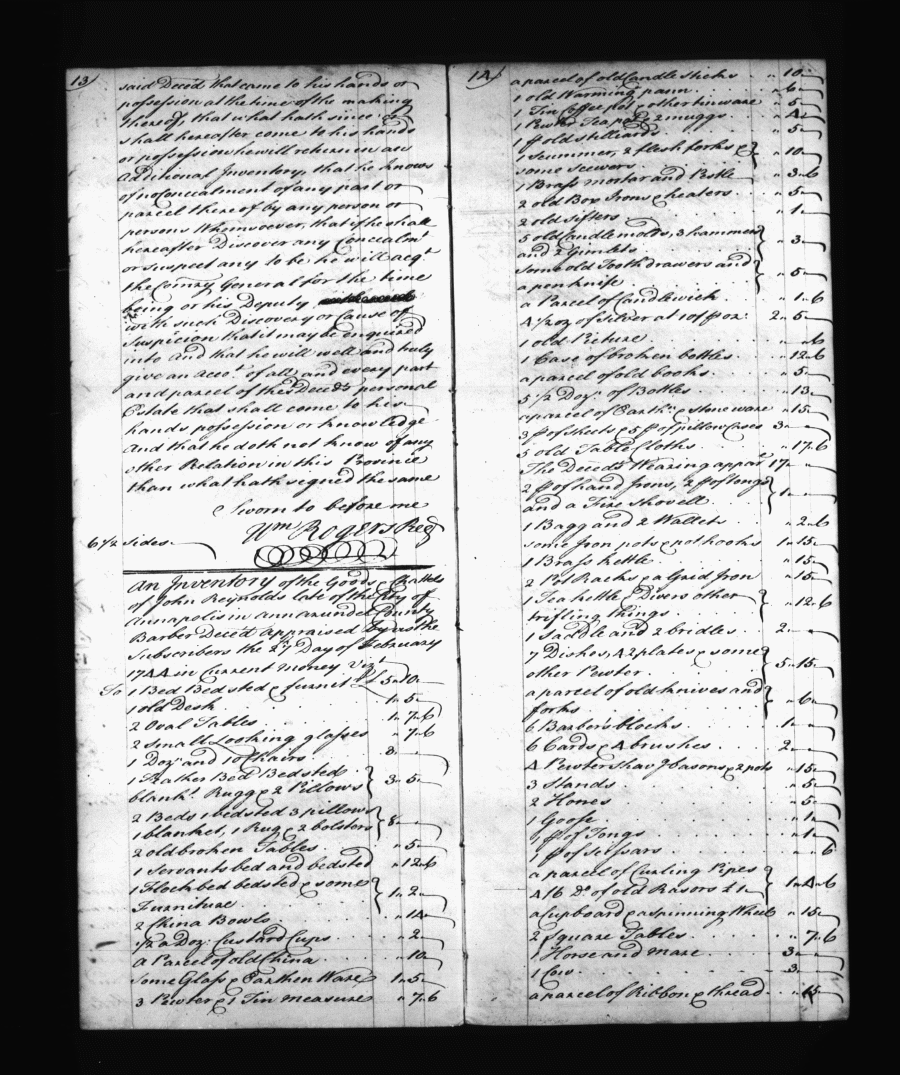 13/
said Deced that came to his hands or
possession at the time of the making
thereof, that what hath since or
shall hereafter come to his hands
or possession he will return in an
additional Inventory, that he knows
of no concealment of any part or
parcel thereof by any person or
persons Whomsoever, that if he shall
hereafter Discover any Concealmt
or suspect any to be he will acqt
the Comry General for the time
being or his Deputy
with such Discovery or Cause of
Suspicion that it may be enquired
into And that he will well and truly
give an Accot. of all and every part
and parcel of the Deceds personal
Estate that shall come to his
hands possession or knowledge
And that he doth not know of any
other Relation in this Province
than what hath signed the same
Sworn to before me
Wm Rogers Regr
6 1/2 sides
An Inventory of the Goods & Chattels
of John Reynolds late of the City of
Annapolis in ann arundel County
Barber Deced Appraised by us the
Subscribers the 27 Day of February
1744 in Current money Vizt
To 1 Bed Bedsted & furnitr £ 5 " 10 "
1 old Desk 1 " 5 "
2 Oval Tables 1 " 7 " 6
2 small Looking glasses " 7 " 6
1 Dozn and 10 Chairs 8
1 Feather Bed Bedsted
blankt. Rugg & 2 Pillows 3 " 5 "
2 Beds 1 bedsted 3 pillows
1 blanket, 1 Rug & 2 bolsters 8 "
2 old broken Tables " 5 "
1 Servants bed and bedsted " 12 " 6
1 Flock bed bedsted & some
Furniture 1 " 2 "
2 China Bowls " 14
1/2 a Doz: Custard Cups " 2
a Parcel of old China " 10
Some Glass & Earthen Ware 1 " 5 "
3 Pewter & 1 Tin measure " 7 " 6
14/
a parcel of old Candlesticks " 10
1 old Warming pann " 6
1 Tin Coffee pot & other tin ware " 5
1 Pewter Tea pot 2 muggs " 4
1 pr old stilliards " 5
1 Scummer, 2 flesh forks &
some scewers " 10
1 Brass mortar and Pestle " 3 " 6
2 old Box Irons & heaters " 5
2 old sifters " 1
5 old Candle molds, 3 hammers
and 2 Gimlets " 3
Some old Tooth drawers and
a penknife " 5
a Parcel of Candlewick " 1 " 6
4 1/2 oz of silver at 10 p oz 2 " 5
1 old Picture " " 6
1 Case of broken bottles " 12 " 6
a parcel of old books " 5
5 1/2 Dozn of Bottles " 13
a parcel of Earthn & stone ware " 15
3 pr of sheets & 5 pr of pillow Cases 3 "
5 old Table Cloths " 17 " 6
The Deceds Wearing apparl 17 "
2 pr of hand Irons, 2 pr of tongs
and a Fire Shovell 1 "
1 Bagg and 2 Wallets " 2 " 6
some Iron pots & pot hooks 1 " 15
1 Brass kettle " 15
2 Pot Racks & a Grid Iron " 15
1 Tea kettle, Divers other
trifling things " 12 " 6
1 Saddle and 2 bridles 2 "
7 Dishes, 42 plates & some
other Pewter 5 " 15
a parcel of old knives and
forks " 6
6 Barber's blocks 1 "
6 Cards & 4 brushes 2 "
4 Pewter Shavg basons & 2 pots " 15
3 Stands " 5
2 Hones " 5
1 Goose " 1
1 pr of Tongs " 1
1 pr of Scissars " " 6
a parcel of Curling Pipes
4/6 Do. of old Rasors £1 1 " 4 " 6
a Cupboard & a spinning Wheel " 15
2 square Tables " 7 " 6
1 Horse and mare 3 "
1 Cow 3
a parcel of Ribbon & thread " 15